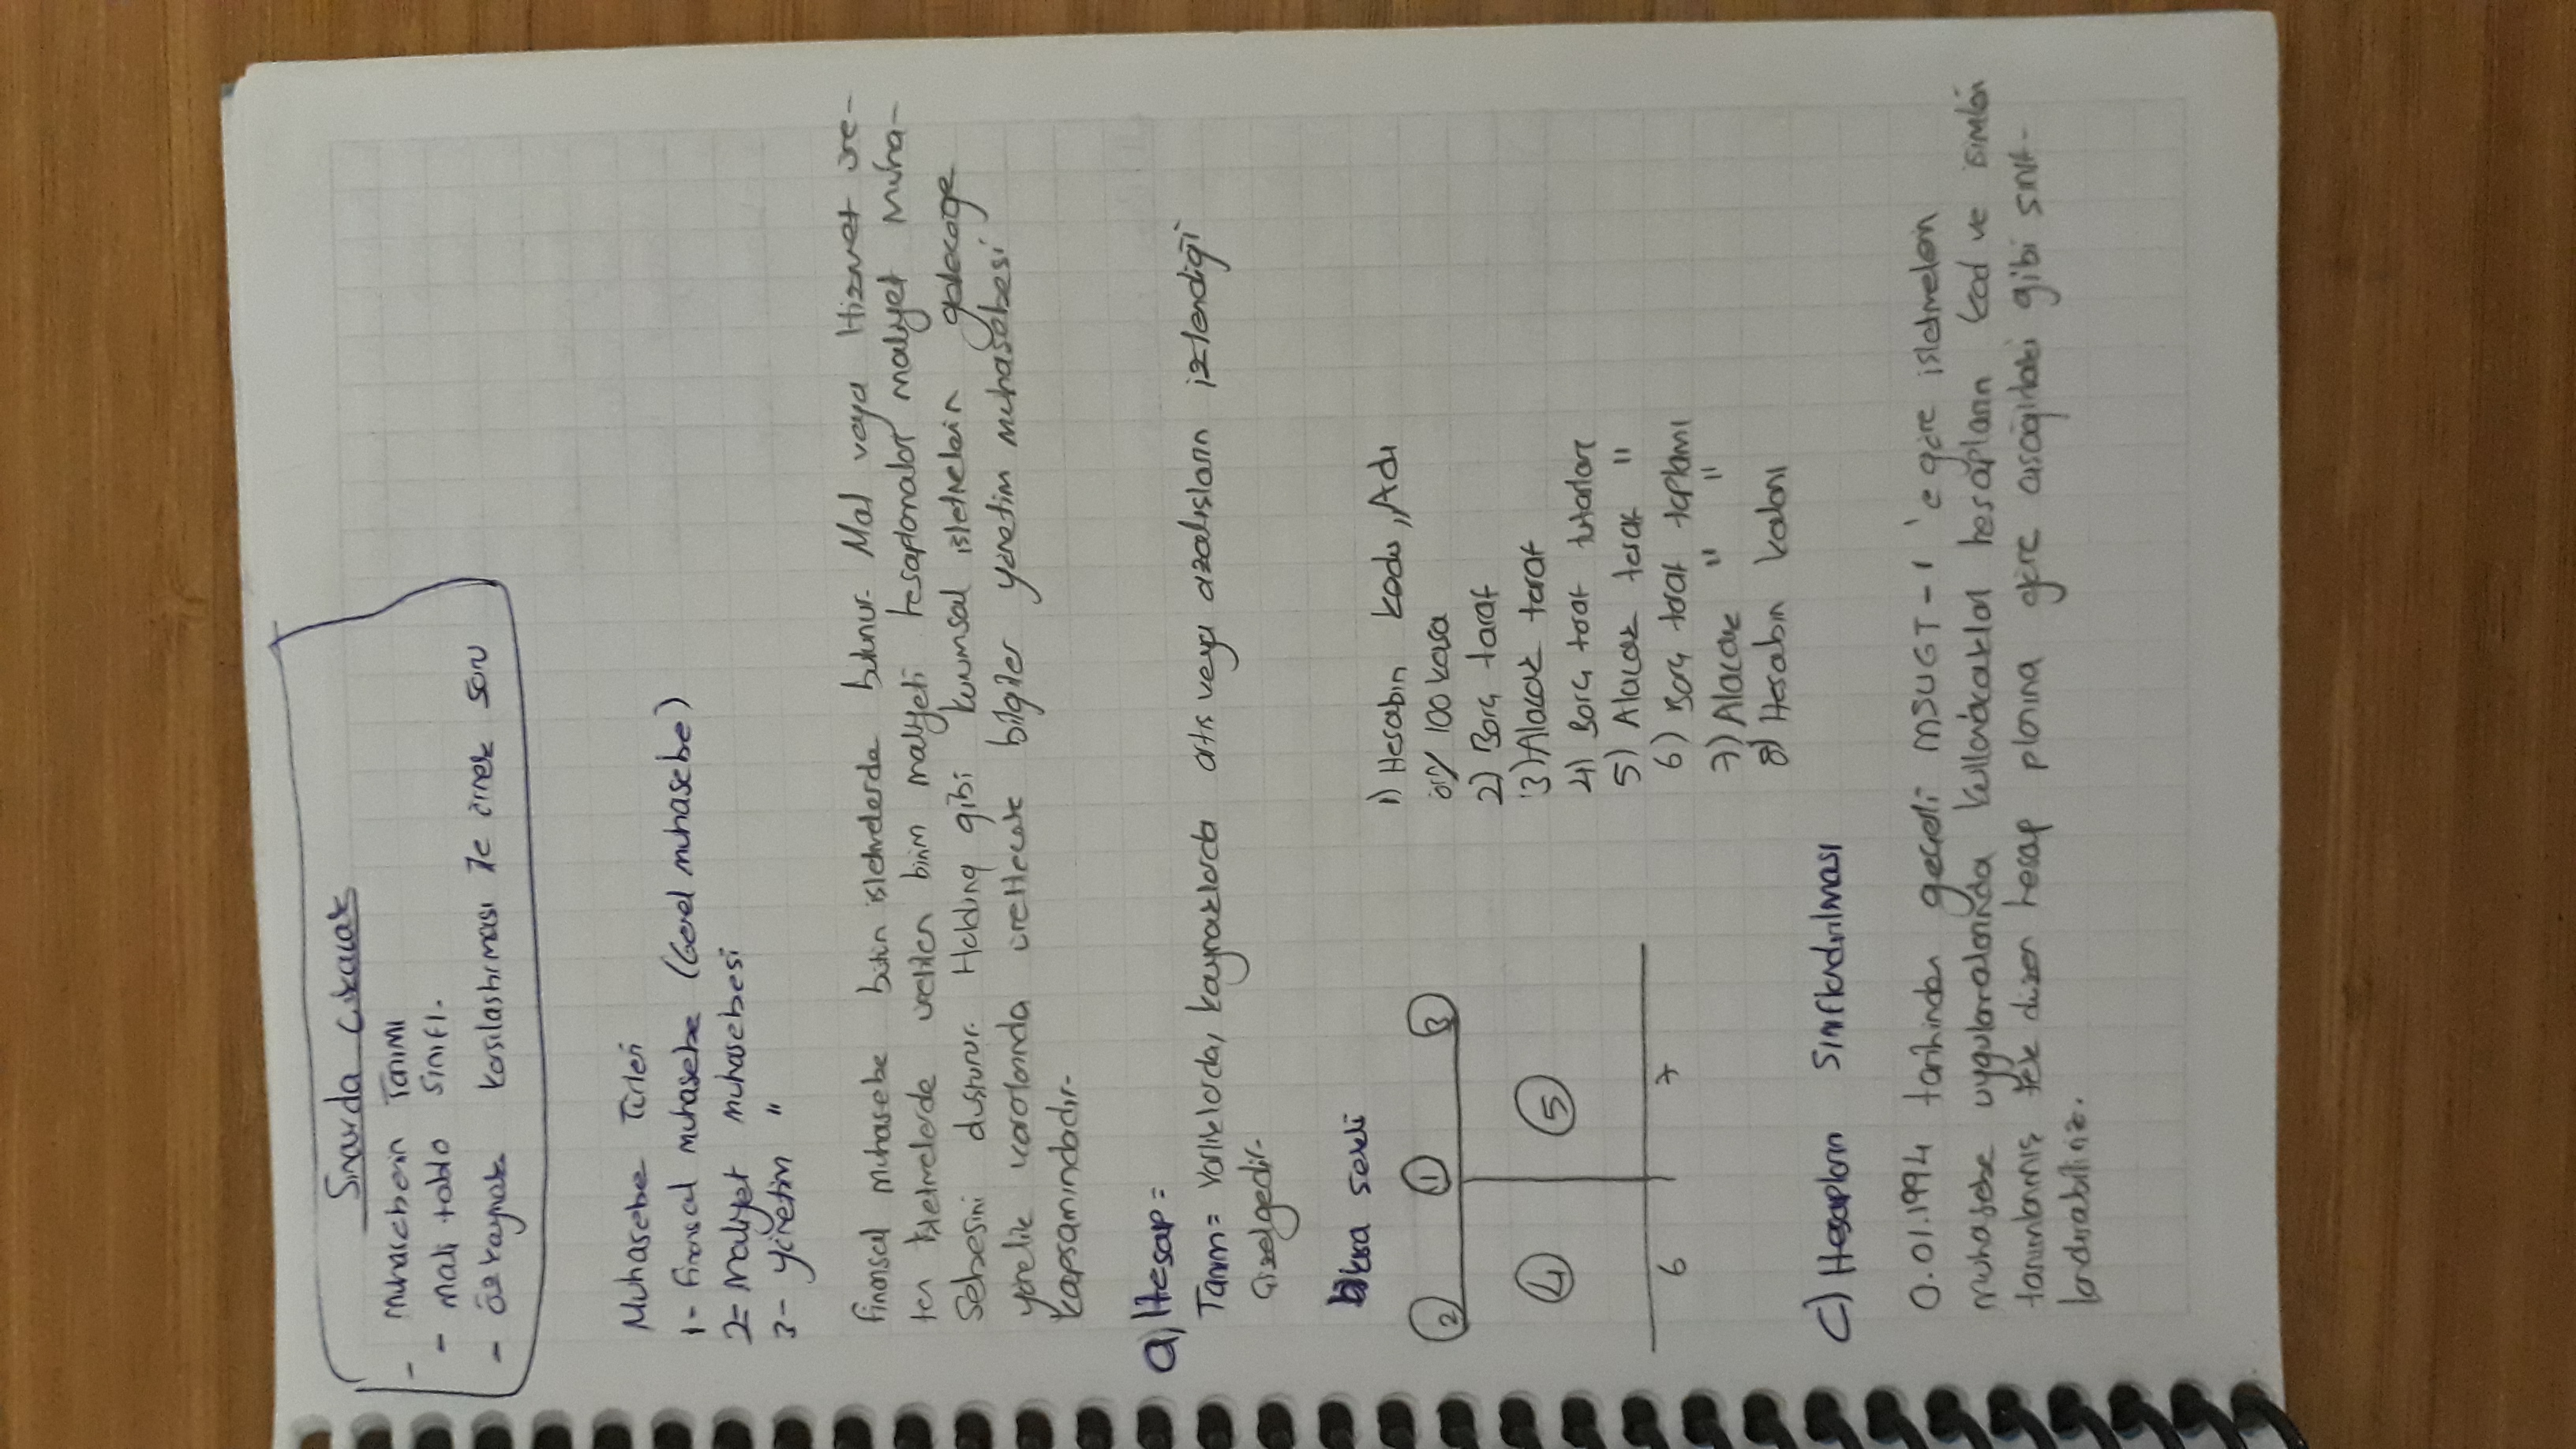 Sınavda Çıkacak
- Muhasebenin Tanımı
- Mali tablo sınıfl.
- Öz kaynak karşılaştırması ile örnek soru
Muhasebe Türleri
1- Finansal muhasebe (Genel muhasebe)
2- Maliyet muhasebesi
3- Yönetim "
Finansal muhasebe bütün işletmelerde bulunur. Mal veya Hizmet üre-
ten işletmelerde üretilen birim maliyeti hesaplamalar maliyet muha-
sebesini oluşturur. Holding gibi kurumsal işletmelerin geleceğe
yönelik kararlarında üretilecek bilgiler yönetim muhasebesi
kapsamındadır.
a) Hesap =
Tanım = Varlıklarda, kaynaklarda artış veya azalışların izlendiği
çizelgedir.
b) kısa şekli
2 1 3
4 5
6 7
1) Hesabın kodu, Adı
örn/ 100 kasa
2) Borç taraf
3) Alacak taraf
4) Borç taraf tutarları
5) Alacak taraf "
6) Borç taraf toplamı
7) Alacak " "
8) Hesabın kalanı
C) Hesapların Sınıflandırılması
0.01.1994 tarihinden geçerli MSUGT-1 'e göre işletmelerin
muhasebe uygulamalarında kullanacakları hesapların kod ve isimleri
tanımlanmış tek düzen hesap planına göre aşağıdaki gibi sınıf-
landırabiliriz.